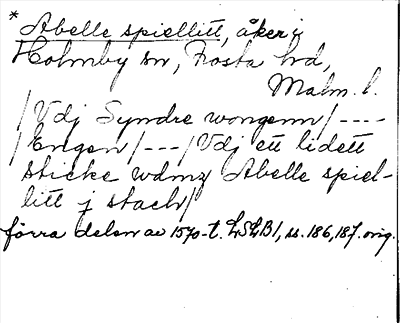 * Abelle spiellitt, åker i
Holmby sn, Frosta hd,
Malm. l.
/Vdj Syndre wongenn/----
/Engen/---/Vdj ett lidett
sticke wdmz Abelle spiel-
litt j stach/
förra delen av 1570-t. LSLB1, ss. 186, 187. orig.